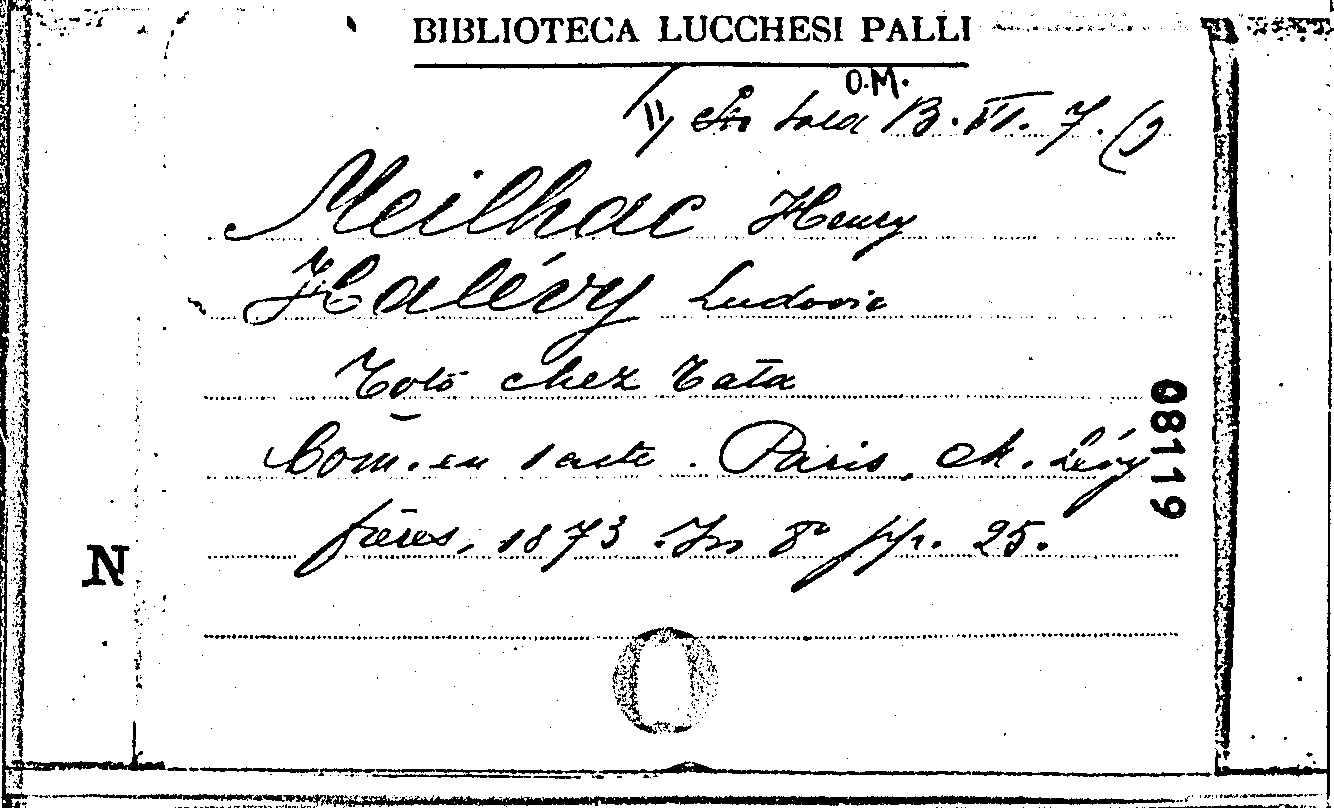 BIBLIOTECA LUCCHESI PALLI
O.M.
Sala B. VI. 7. (
Meilhac Henry
Halévy Ludovic
Totò chez Tata
Com. en 1 acte. Paris, M. Lévy
frères, 1873. In 8° pp. 25.
08119
N